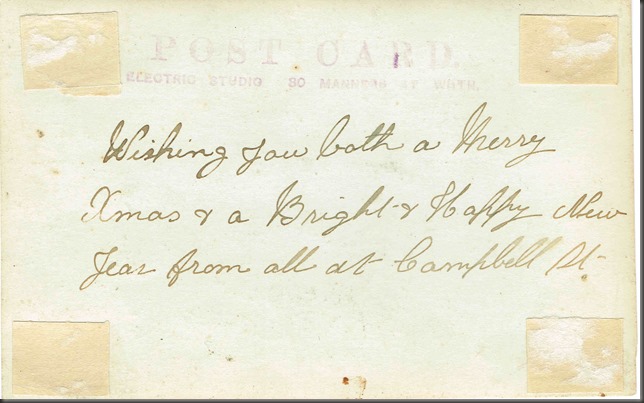 POST CARD.
ELECTRIC STUDIO 80 MANNERS ST WGTN.
Wishing you both a Merry
Xmas & a Bright & Happy New
Year from all at Campbell St